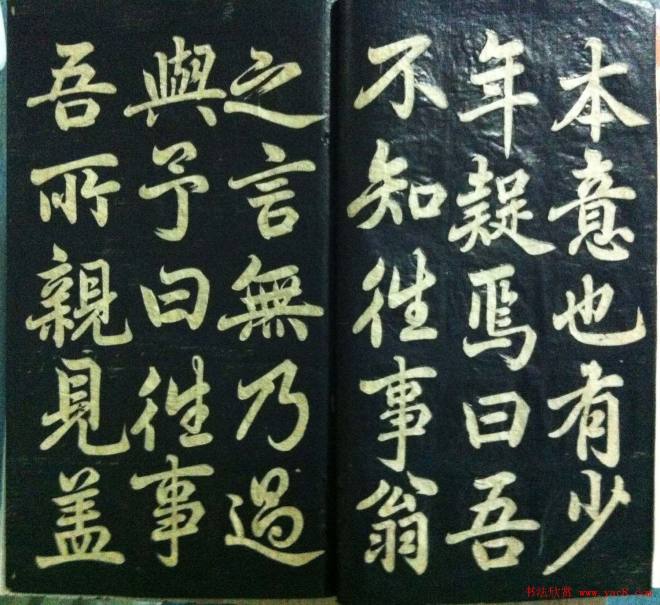 本意也有少
年疑焉曰吾
不知徃事翁
之言無乃過
與予曰徃事
吾所親見盖
书法欣赏 www.yac8.com